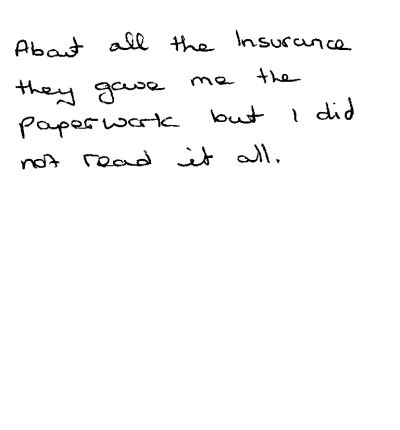 About all the Insurance
they gave me the
paperwork but I did
not read it all.